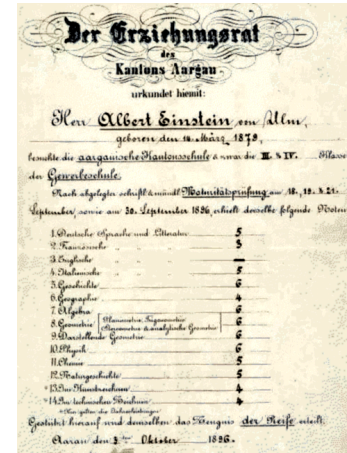 Der Erziehungsrat
des
Kantons Aargau
urkundet hiemit:
Herr Albert Einstein von Ulm,
geboren den 14. März 1879,
besuchte die aargauische Kantonsschule & zwar die III. & IV. Klasse
der Gewerbeschule.
Nach abgelegter schriftl. & mündl. Maturitätsprüfung am 18., 19. & 21.
September, sowie am 30. September 1896, erhielt derselbe folgende Noten:
1. Deutsche Sprache und Litteratur 5
2. Französische „ „ 3
3. Englische „ „ —
4. Italienische „ „ 5
5. Geschichte 6
6. Geographie 4
7. Algebra 6
8. Geometrie (Planimetrie, Trigonometrie 6
Stereometrie & analytische Geometrie) 6
9. Darstellende Geometrie 6
10. Physik 6
11. Chemie 5
12. Naturgeschichte 5
*13. Im Kunstzeichnen 4
*14. Im technischen Zeichnen 4
* Hier gelten die Jahresleistungen.
Gestützt hierauf wird demselben das Zeugnis der Reife erteilt.
Aarau den 3ten Oktober 1896.